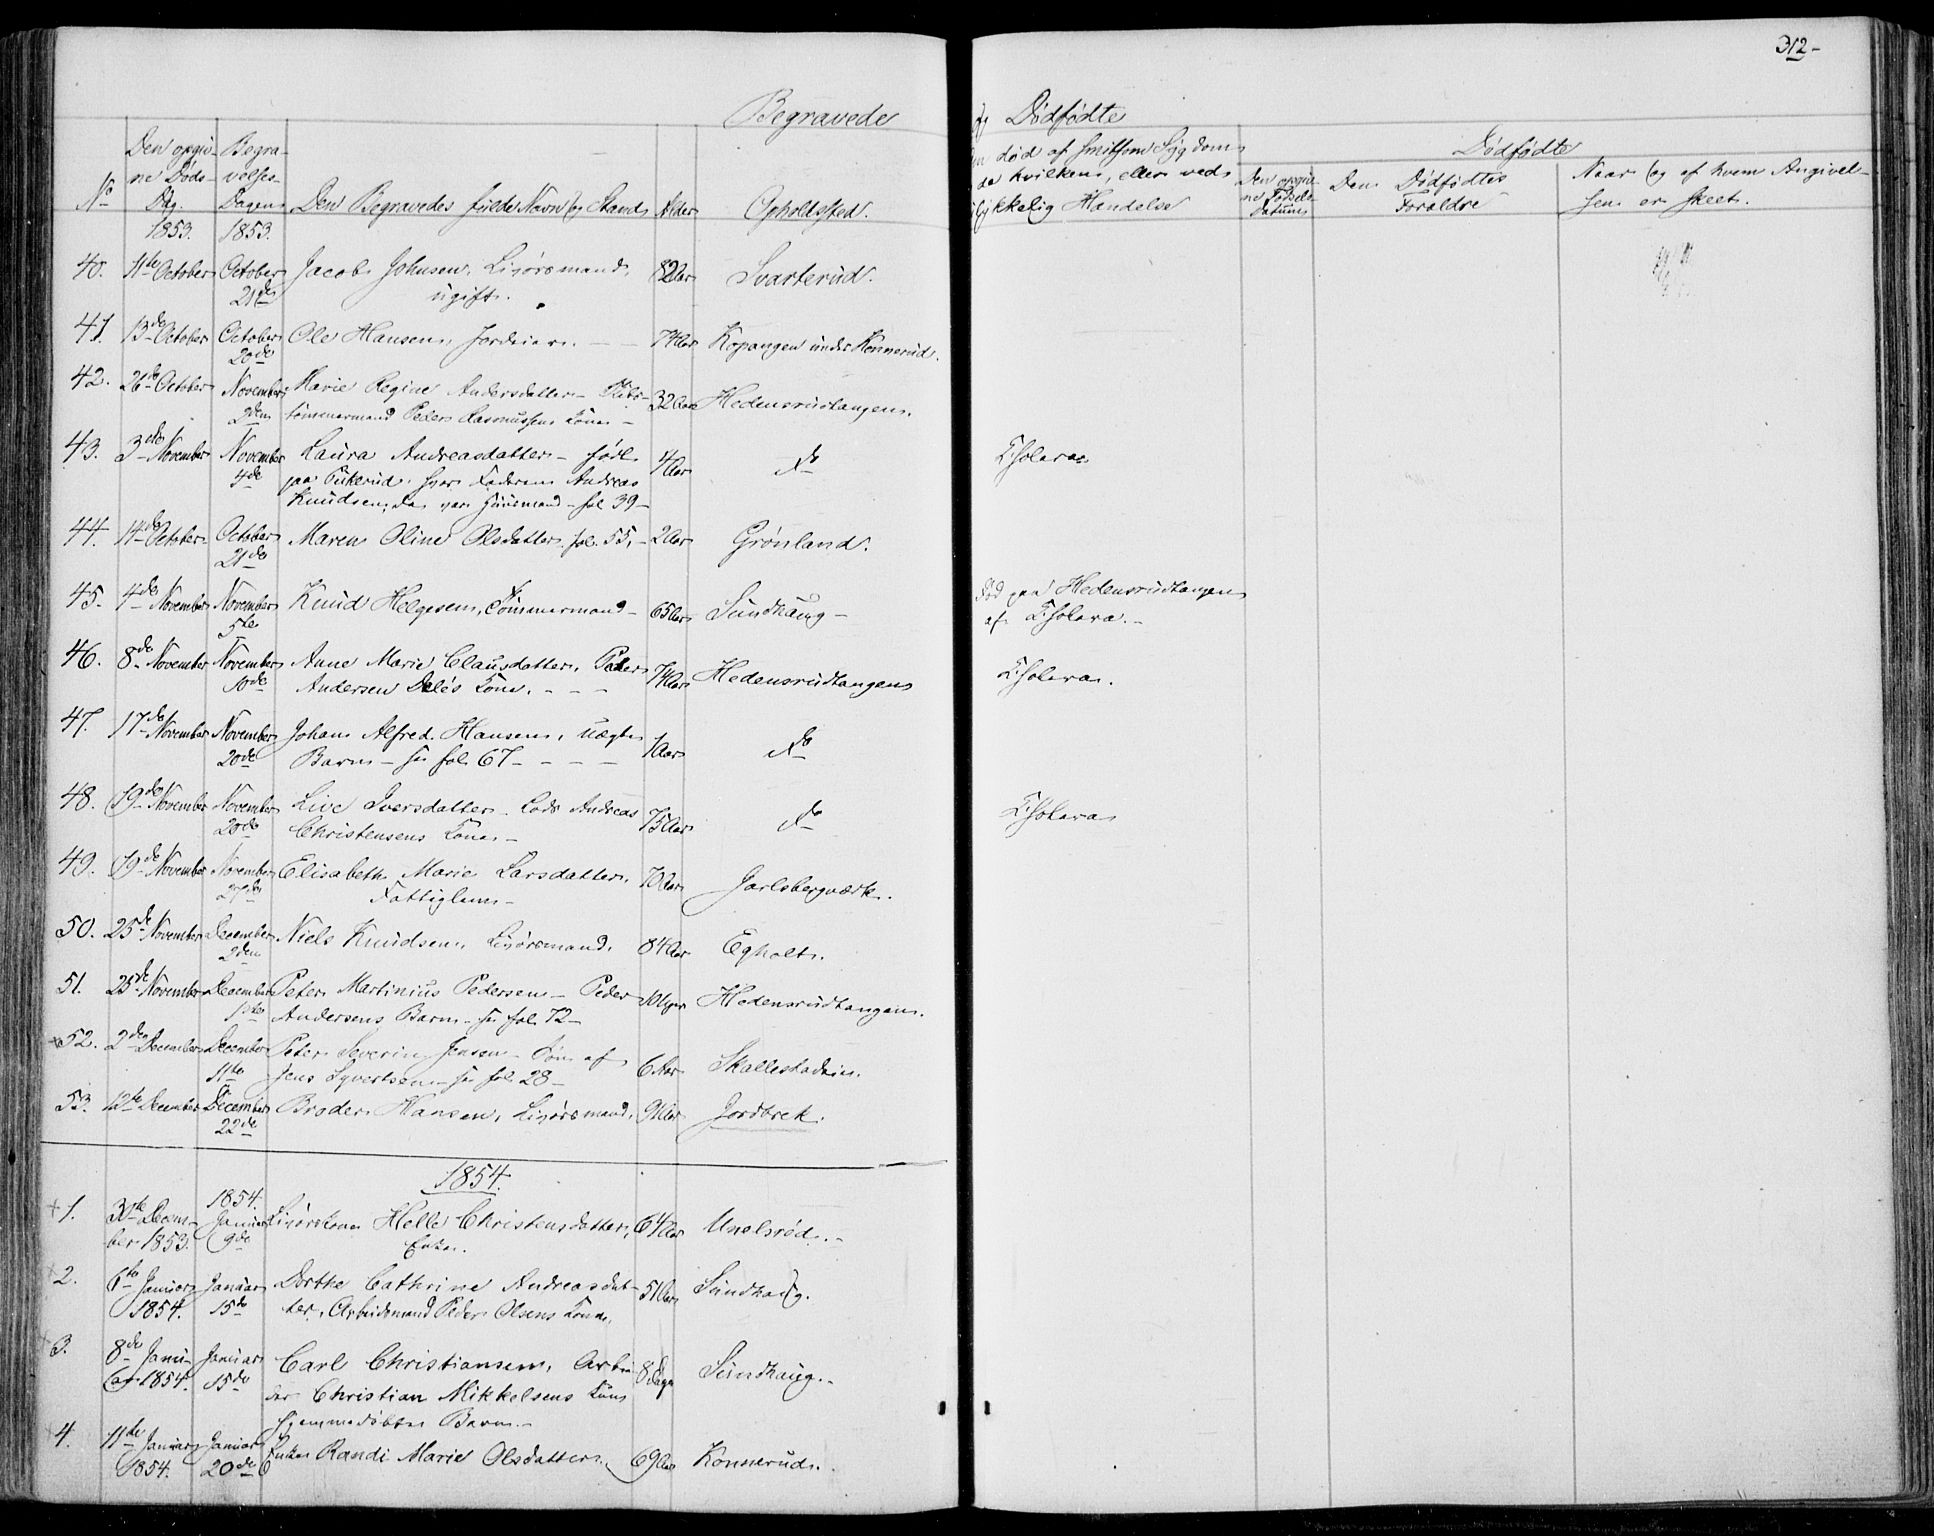 312-
Begravede og Dødfødte
No
Den opgiv-
ne Døds-
Dag.
Begra-
velses-
Dagen
Den Begravedes fulde Navn og Stand
Alder
Opholdssted.
død af smitsom Sygdom
da hvilken, eller ved
lykkelig Hændelse
Dødfødte
Den opgiv-
ne Fødsels-
datum
Den Dødfødtes
Forældre
Naar og af hvem Angivel-
sen er skeet.
1853. 1853.
40. 11te October October 21de Jacob Johnsen, Livørsmand, 82 Aar Svarterud.
ugift.
41. 13de October October 20de Ole Hansen, Jordeier. 74 Aar Kopangen under Konnerud.
42. 26de October November 2den Marie Regine Andersdatter - Skibs- 32 Aar Hedensrudtangen.
tømmermand Peder Rasmussens Kone -
43. 3de November November 4de Laura Andreasdatter - født 4 Aar do Cholera
paa Pukerud hvor Faderen Andreas
Knudsen, da var Huusmand - fol 39 -
44. 14de October October 21de Maren Oline Olsdatter fol. 55, - 2 Aar Grønland.
45. 4de November November 5te Knud Helgesen, Tømmermand - 65 Aar Sundhaug - død paa Hedensrudtangen
af Cholera. -
46. 8de November November 10de Anne Marie Clausdatter, Peder 74 Aar Hedensrudtangen Cholera.
Andersen Deles Kone. - - -
47. 17de November November 20de Johan Alfred Hansen, uægte 1 Aar do
Barn - se fol. 67 - - - -
48. 19de November November 20de Live Iversdatter Lods Andreas 75 Aar do Cholera
Christensens Kone -
49. 19de November November 27de Elisabeth Marie Larsdatter, 70 Aar Jarlsbergværk.
Fattiglem -
50. 25de November December 2den Niels Knudsen, Livørsmand, 84 Aar Egholt.
51. 25de November December Peter Martinius Pedersen - Peder 10 Uger Hedensrudtangen.
Andersens Barn - se fol. 72 -
+52. 2den December December 11te Peter Severin Jensen - Søn af 6 Aar Skallestadeie.
Jens Syvertsen - se fol. 28 -
53. 12te December December 22de Broder Hansen, Livørsmand, 91 Aar Jordbrek.
1854.
1854.
+1. 30te Decem- Januar Livørskone Helle Christensdatter, 64 Aar Unelsrød. -
ber 1853. 9de Enke.
+2. 6te Januar Januar Dorthe Cathrine Andreasdat- 51 Aar Sundhaug.
1854. 15de ter, Arbeidsmand Peder Olsens Kone.
+3. 8de Janu- Januar Carl Christiansen, Arbei- 8 Dage Sundhaug. -
ar 1854. 15de der Christian Mikkelsens Søn
hjemmedøbte Barn. -
4. 11te Januar Januar Enke Randi Marie Olsdatter, 69 Aar Konnerud.
1854. 20de